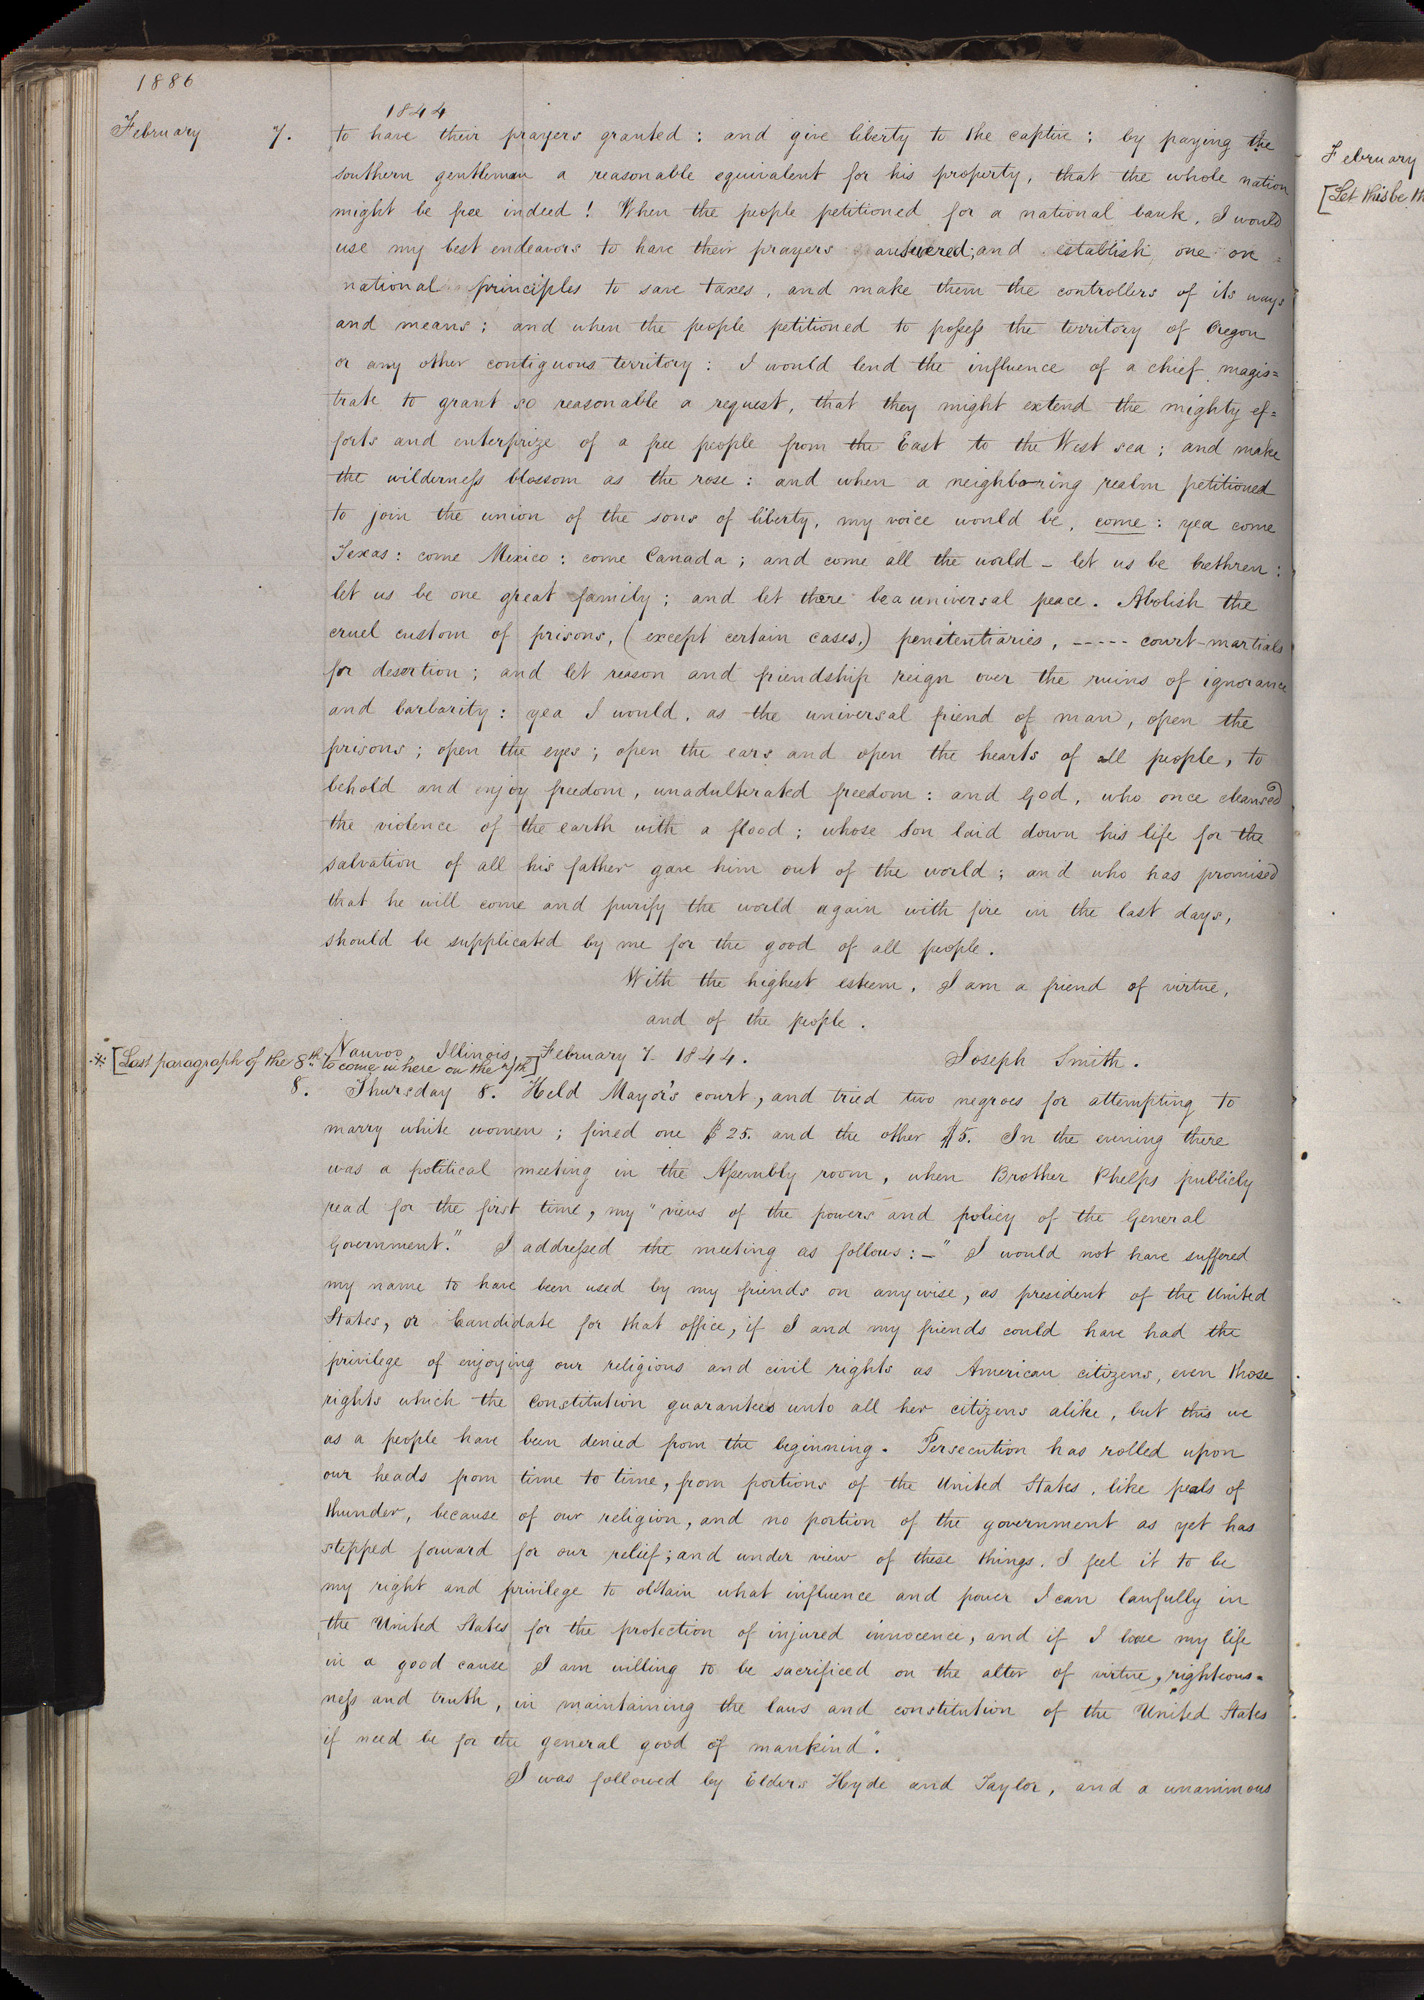 1886
1844
February 7. to have their prayers granted: and give liberty to the captive: by paying the
southern gentleman a reasonable equivalent for his property, that the whole nation
might be free indeed! When the people petitioned for a national bank, I would
use my best endeavors to have their prayers answered; and establish one on
national principles to save taxes, and make them the controllers of its ways
and means: and when the people petitioned to possess the territory of Oregon
or any other contiguous territory: I would lend the influence of a chief magis=
trate to grant so reasonable a request, that they might extend the mighty ef=
forts and enterprize of a free people from the East to the West sea; and make
the wilderness blossom as the rose: and when a neighboring realm petitioned
to join the union of the sons of liberty, my voice would be, come: yea come
Texas: come Mexico: come Canada; and come all the world – let us be brethren:
let us be one great family; and let there be a universal peace. Abolish the
cruel custom of prisons, (except certain cases,) penitentiaries, ----- court-martials
for desertion; and let reason and friendship reign over the ruins of ignorance
and barbarity: yea I would, as the universal friend of man, open the
prisons; open the eyes; open the ears and open the hearts of all people, to
behold and enjoy freedom, unadulterated freedom: and God, who once cleansed
the violence of the earth with a flood; whose Son laid down his life for the
salvation of all his father gave him out of the world; and who has promised
that he will come and purify the world again with fire in the last days,
should be supplicated by me for the good of all people.
With the highest esteem, I am a friend of virtue,
and of the people.
Nauvoo, Illinois, February 7 1844. Joseph Smith.
* [Last paragraph of the 8th to come in here on the 7th]
8. Thursday 8. Held Mayor's court, and tried two negroes for attempting to
marry white women; fined one $25. and the other $5. In the evening there
was a political meeting in the Assembly room, when Brother Phelps publicly
read for the first time, my "views of the powers and policy of the General
Government." I addressed the meeting as follows: – "I would not have suffered
my name to have been used by my friends on anywise, as president of the United
States, or Candidate for that office, if I and my friends could have had the
privilege of enjoying our religious and civil rights as American citizens, even those
rights which the Constitution guarantees unto all her citizens alike, but this we
as a people have been denied from the beginning. Persecution has rolled upon
our heads from time to time, from portions of the United States, like peals of
thunder, because of our religion, and no portion of the government as yet has
stepped forward for our relief; and under view of these things, I feel it to be
my right and privilege to obtain what influence and power I can lawfully in
the United States for the protection of injured innocence, and if I loose my life
in a good cause I am willing to be sacrificed on the alter of virtue, righteous=
ness and truth, in maintaining the laws and constitution of the United States
if need be for the general good of mankind".
I was followed by Elders Hyde and Taylor, and a unanimous
February
[Let this be th